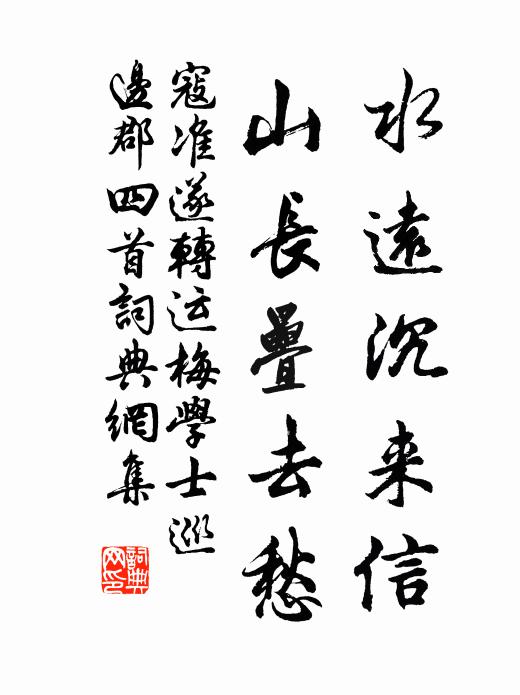 水遠沉来信
山長疊去愁
寇准送轉运梅學士巡
邊郡四首詞典網集
詞典
网印